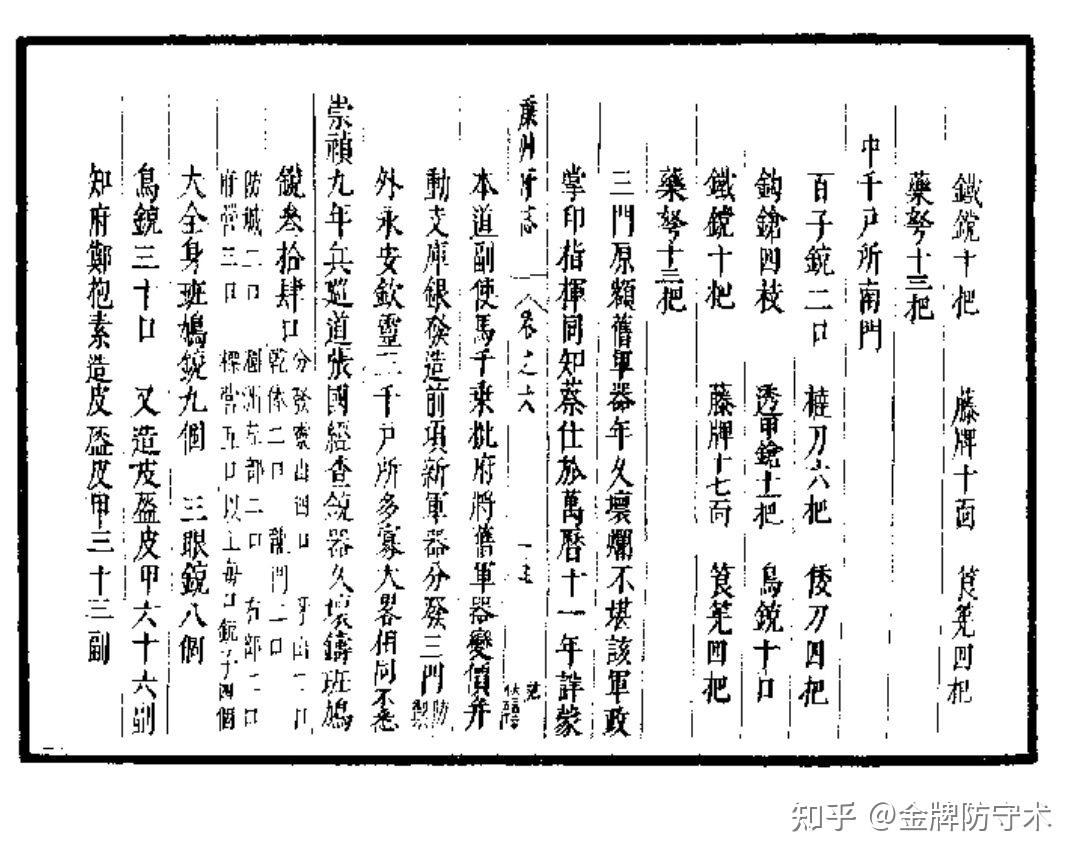 鐵鏡十把　藤牌十面　筤筅四把
藥弩十三把
中千戸所南門
百子銃二口　桩刀六把　倭刀四把
鈎鎗四枝　透甲鎗十把　鳥銃十口
鐵鏡十把　藤牌十七面　筤筅四把
藥弩十三把
三門原額舊軍器年久壞爛不堪該軍政
掌印指揮同知蔡仕於萬曆十一年詳蒙
廉州府志　卷之六
本道副使馬千乘批府將舊軍器變價并
動支庫銀發造前項新軍器分發三門防製
外永安欽靈三千戸所多寡大畧相同不悉
崇禎九年兵廵道張國經查銃器久壞鑄班鳩
銃叁拾肆口
分發靈山四口　牙山二口
乾体二口　龍門二口
防城二口　澗洲左部二口　右部二口
府營三口　標營五口以上每口銃子四個
大全身班鳩銃九個　三眼銃八個
鳥銃三十口　又造皮盔皮甲六十六副
知府鄭抱素造皮盔皮甲三十三副
知乎 @金牌防守术